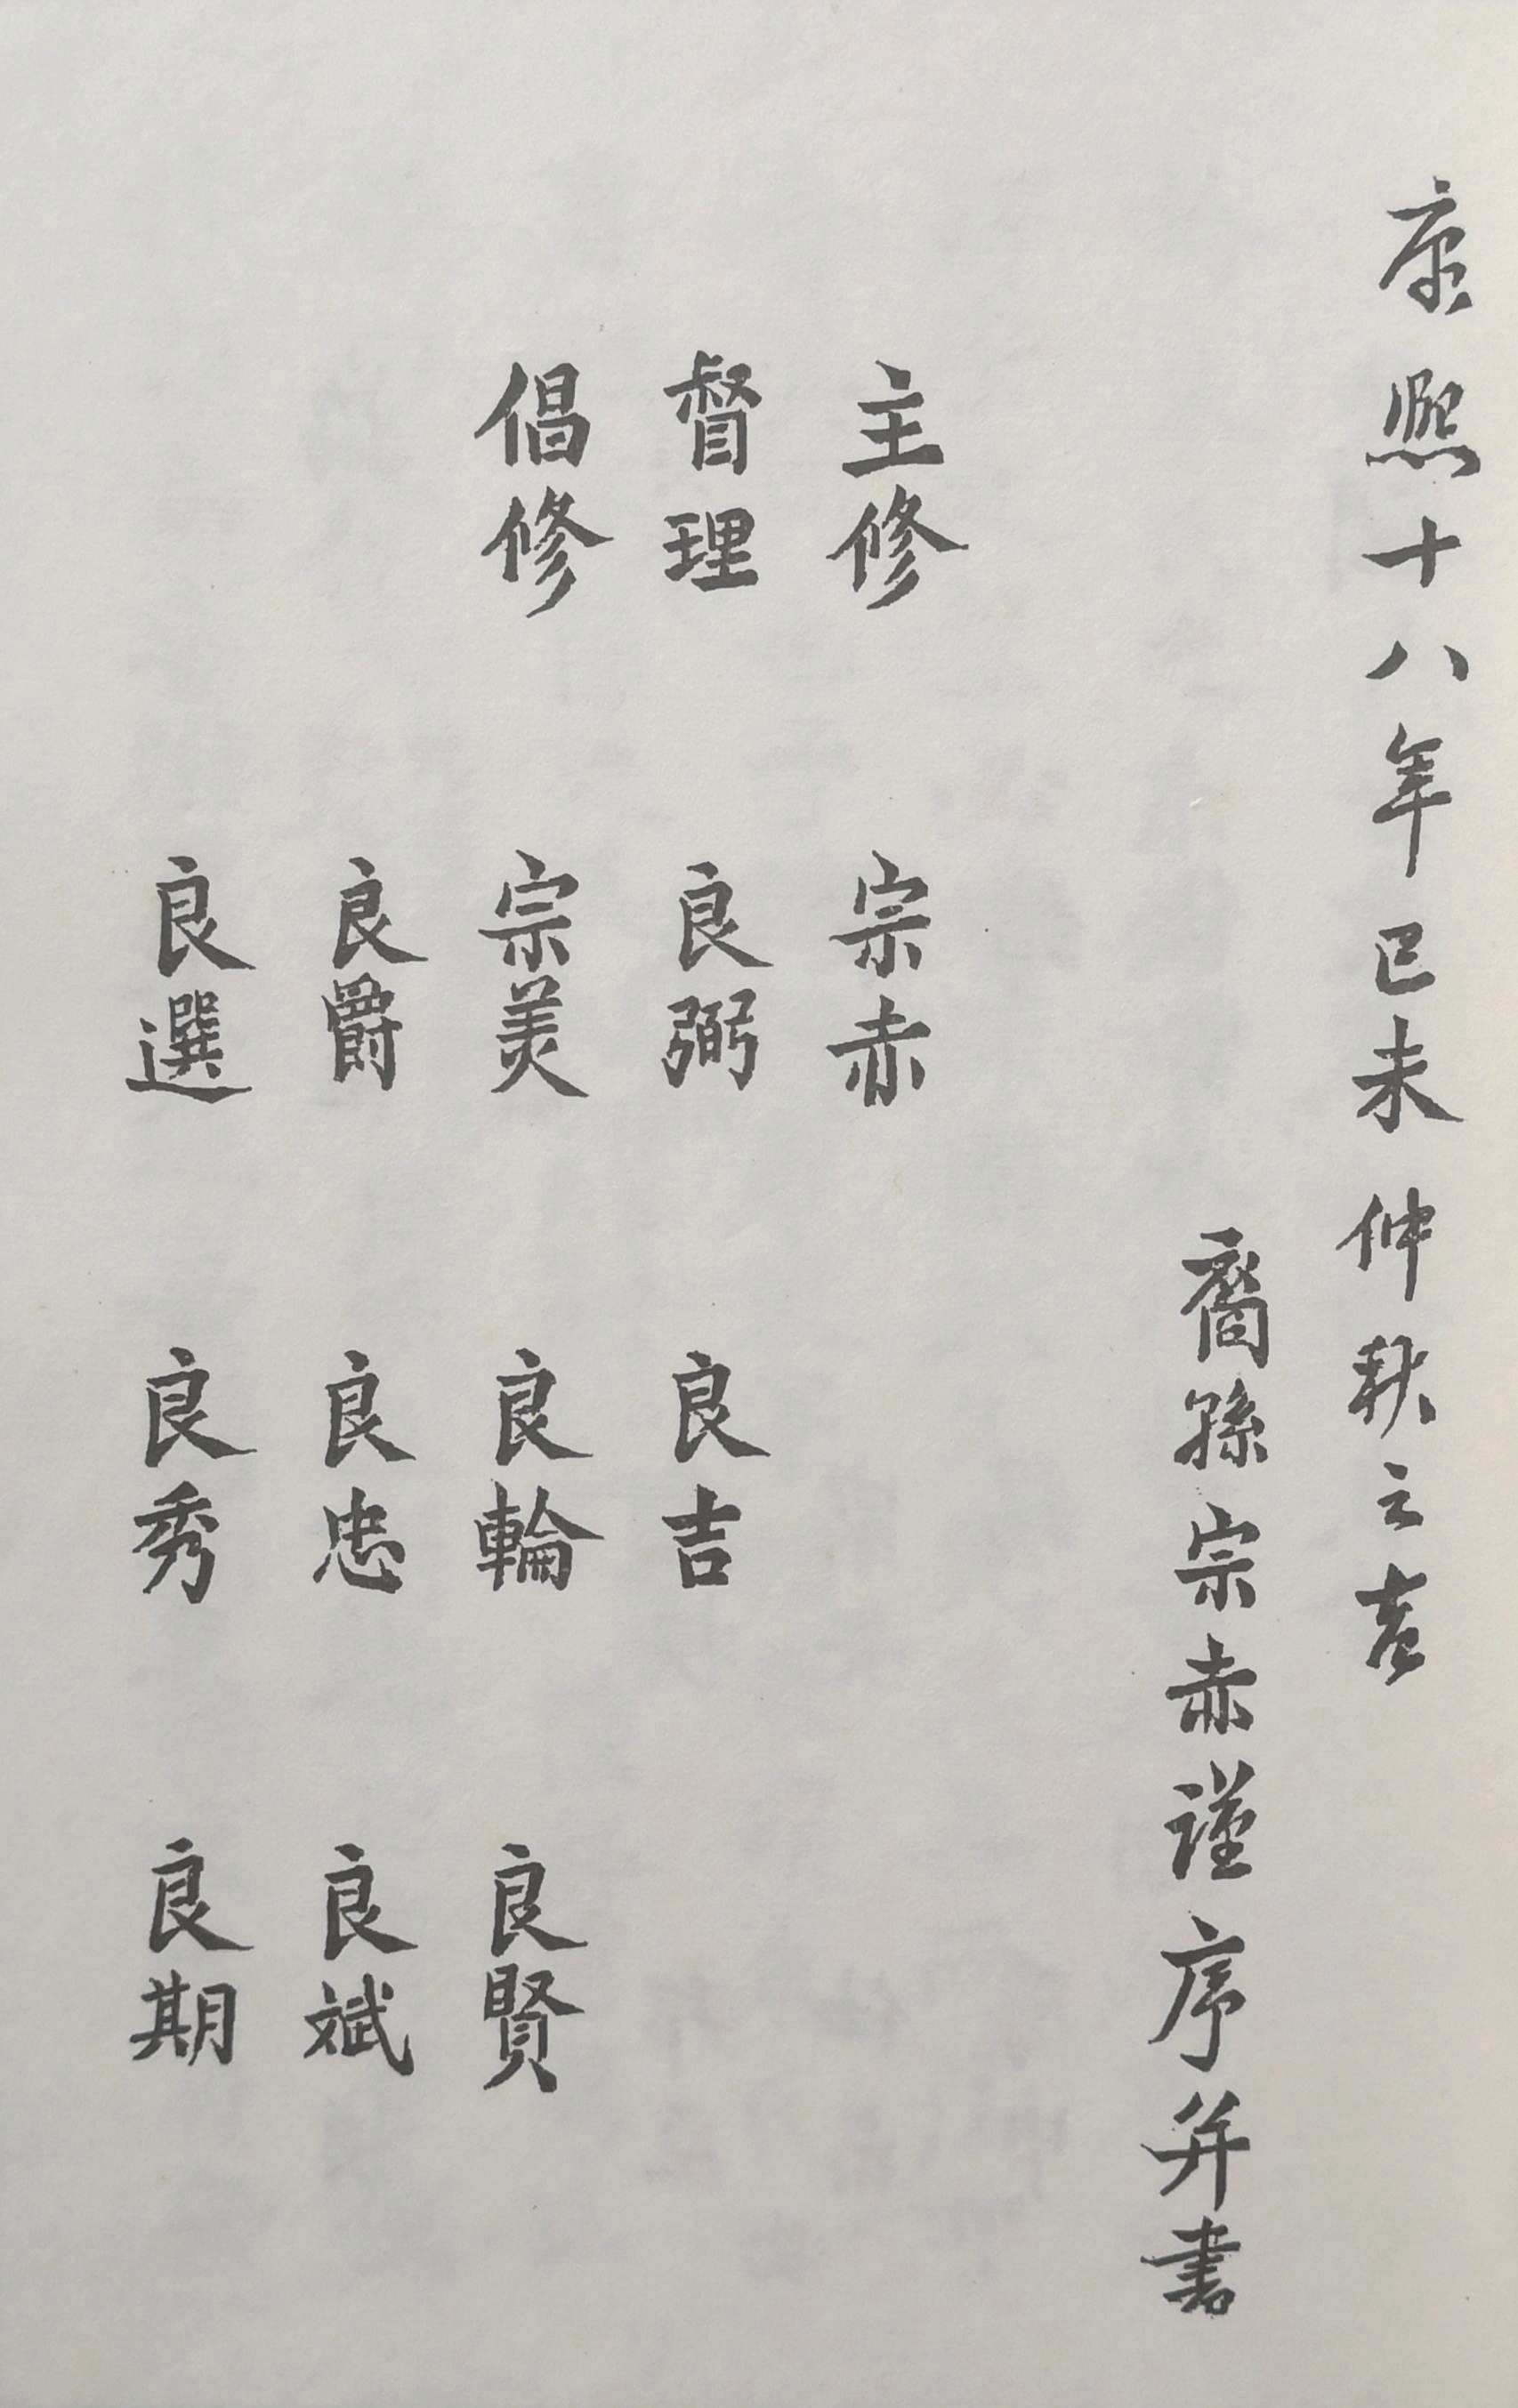 康熙十八年己未仲秋之吉
裔孫宗赤謹序并書
主修 宗赤
督理 良弼 良吉
倡修 宗美 良輪 良賢
良爵 良忠 良斌
良選 良秀 良期